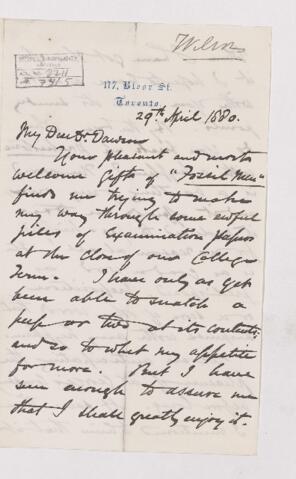 Wilson
2211
117, Bloor St.
Toronto.
29th April 1880.
My Dear Dr Dawson
Your pleasant and most
welcome gift of "Fossil Men"
finds me trying to make
my way through some awful
piles of Examination papers
at the close of our College
Term. I have only as yet
been able to snatch a
peep or two at its contents;
and so to whet my appetite
for more. But I have
seen enough to assure me
that I shall greatly enjoy it.